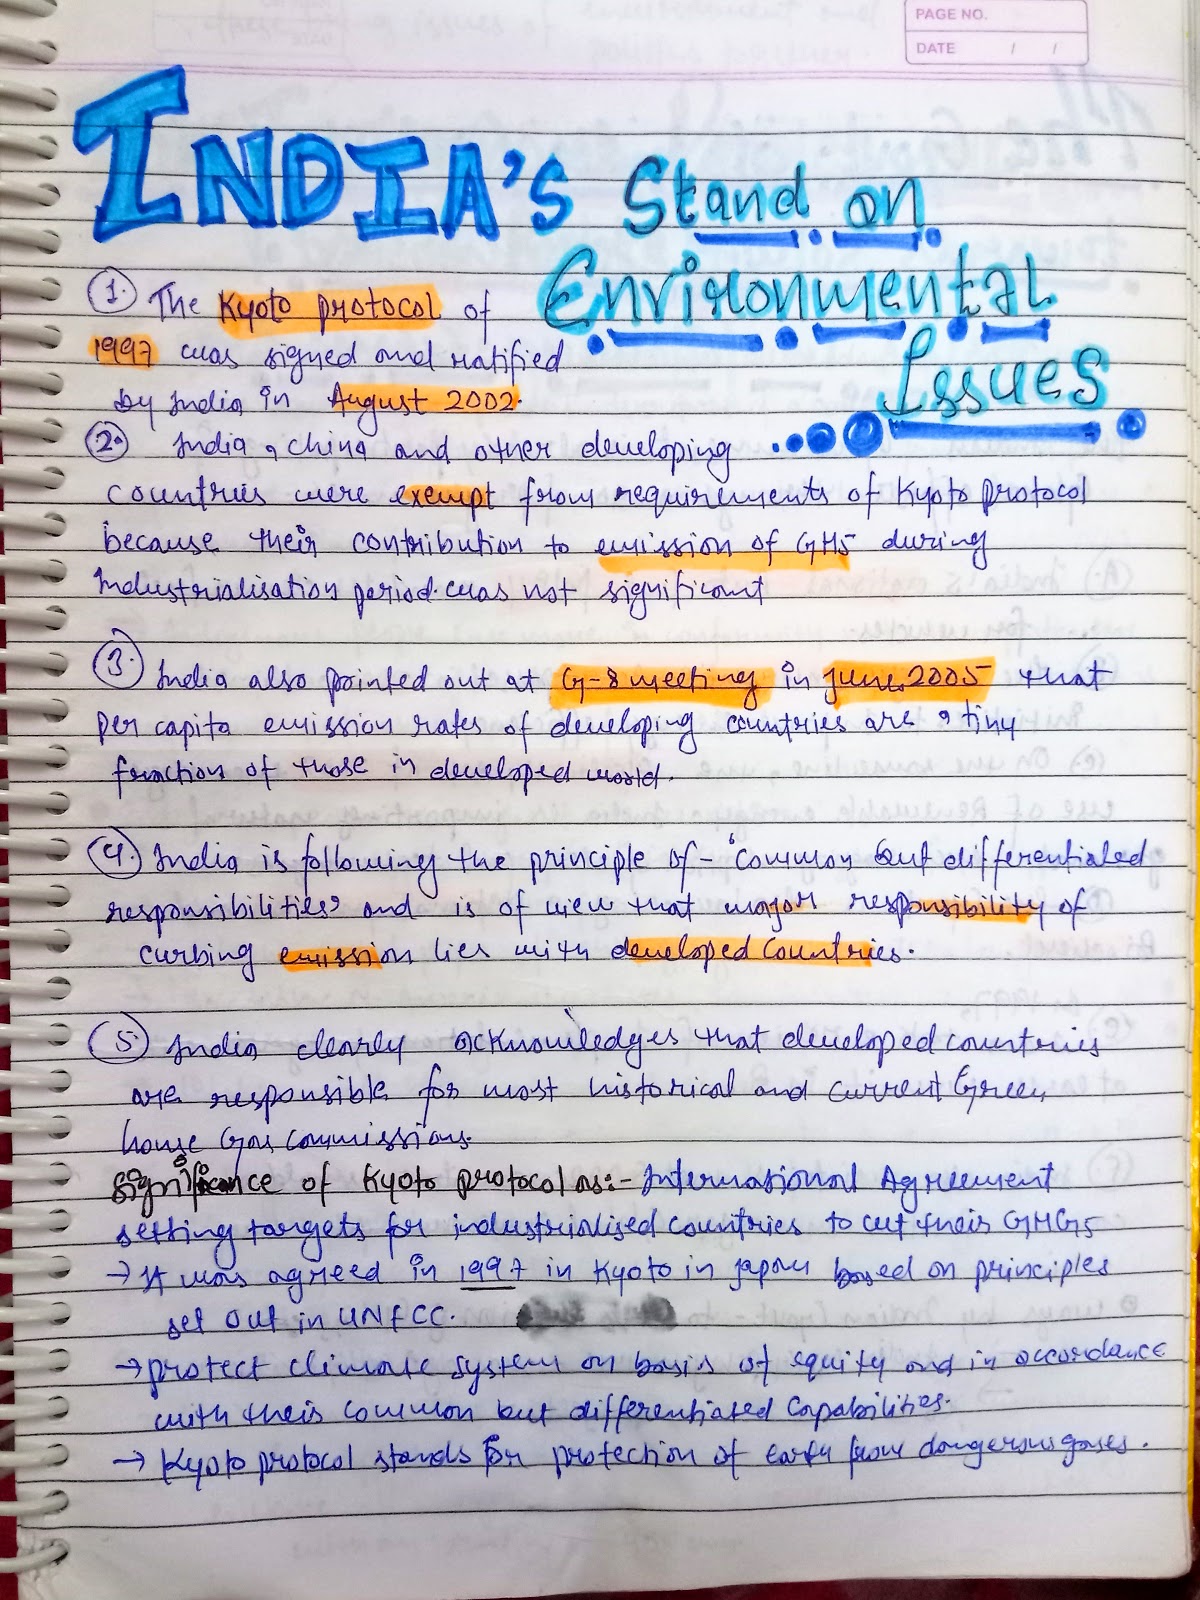 PAGE NO.
DATE / /
INDIA'S Stand on
Environmental
Issues
1. The Kyoto protocol of
1997 was signed and ratified
by India in August 2002.
2. India, china and other developing
countries were exempt from requirements of Kyoto protocol
because their contribution to emission of GHS during
Industrialisation period. was not significant
3. India also pointed out at G-8 meeting in june, 2005 that
per capita emission rates of developing countries are a tiny
fraction of those in developed world.
4. India is following the principle of - 'common but differentialed
responsibilities' and is of view that major responsibility of
curbing emission lies with developed countries.
5. India clearly acknowledges that developed countries
are responsible for most historical and current Green
house Gas commissions.
Significance of Kyoto protocol as:- International Agreement
setting targets for industrialised countries to cut their GHGS
→ It was agreed in 1997 in Kyoto in japan based on principles
set out in UNFCC.
→ protect climate system on basis of equity and in accordance
with their common but differentiated capabilities.
→ Kyoto protocol stands for protection of earth from dangerous gases.